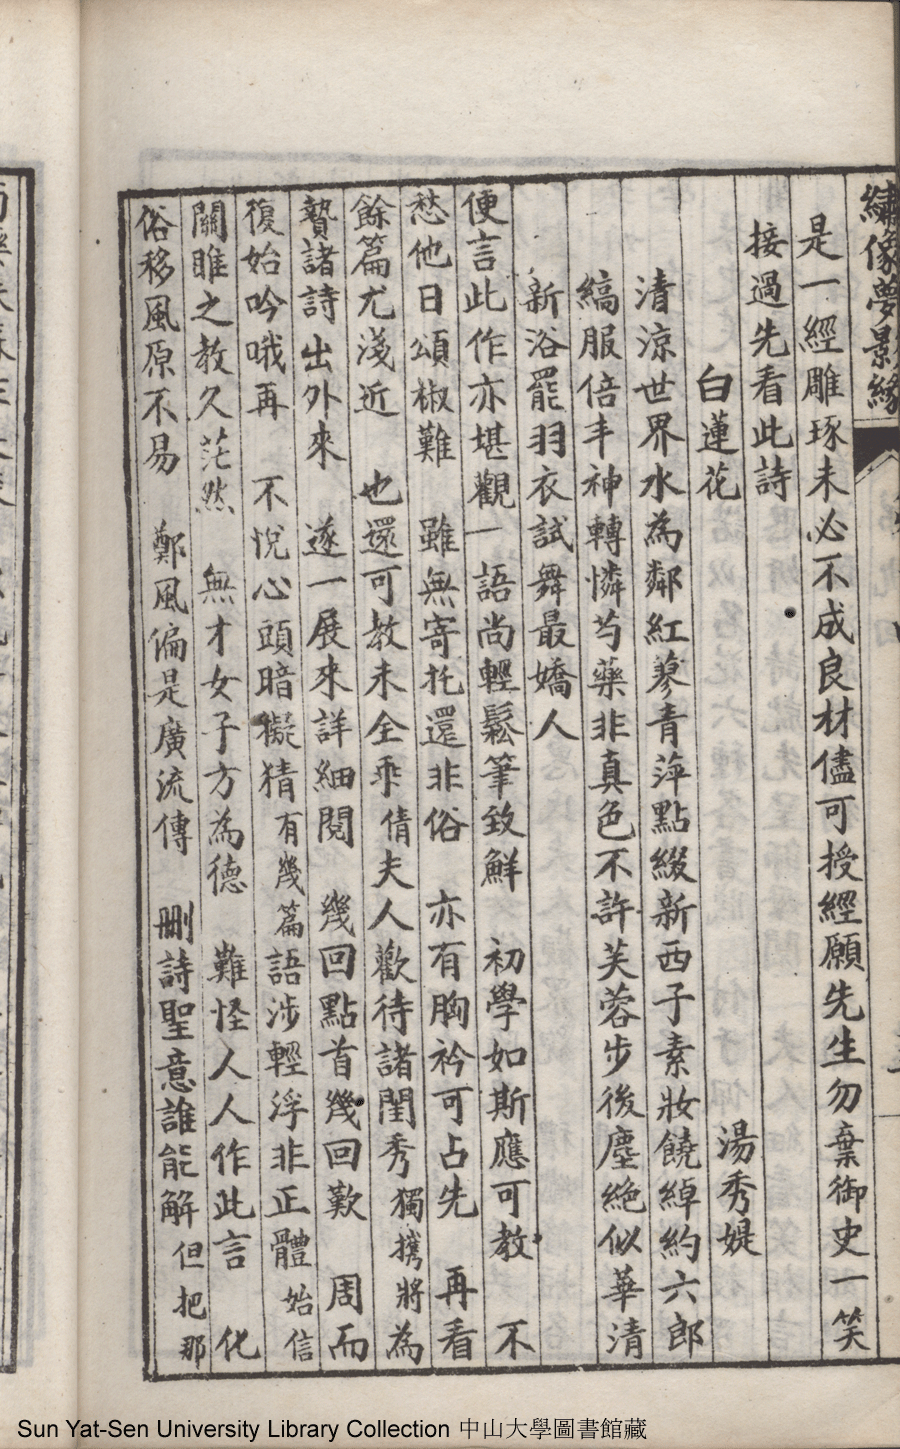 繡像夢景緣
是一經雕琢未必不成良材儘可授經願先生勿棄御史一笑
接過先看此詩
白蓮花　湯秀媞
清涼世界水為鄰紅蓼青萍點綴新西子素妝饒綽約六郎
縞服倍丰神轉憐芍藥非真色不許芙蓉步後塵絕似華清
新浴罷羽衣試舞最嬌人
便言此作亦堪觀一語尚輕鬆筆致鮮　初學如斯應可教　不
愁他日頌椒難　雖無寄托還非俗　亦有胸衿可占先　再看
餘篇尤淺近　也還可教未全乖倩夫人歡待諸閨秀獨攜將為
贄諸詩出外來　遂一展來詳細閱　幾回點首幾回歎　周而
復始吟哦再　不悅心頭暗擬猜有幾篇語涉輕浮非正體始信
關雎之教久茫然　無才女子方為德　難怪人人作此言　化
俗移風原不易　鄭風偏是廣流傳　刪詩聖意誰能解但把那
Sun Yat-Sen University Library Collection 中山大學圖書館藏